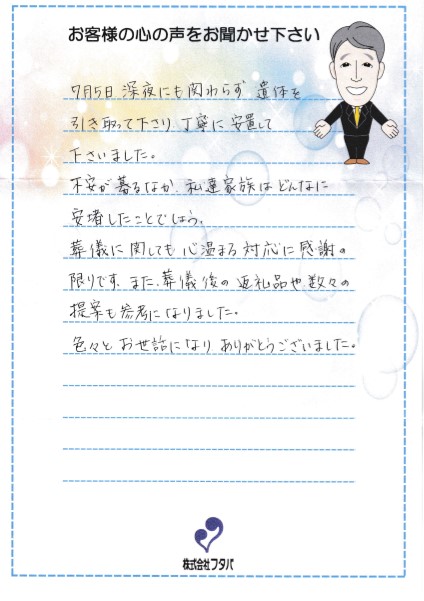 お客様の心の声をお聞かせ下さい
7月5日 深夜にも関わらず 遺体を
引き取って下さり、丁寧に安置して
下さいました。
不安が募るなか、私達家族はどんなに
安堵したことでしょう。
葬儀に関しても 心温まる対応に感謝の
限りです。また、葬儀後の返礼品や数々の
提案も参考になりました。
色々と お世話になり ありがとうございました。
株式会社フタバ